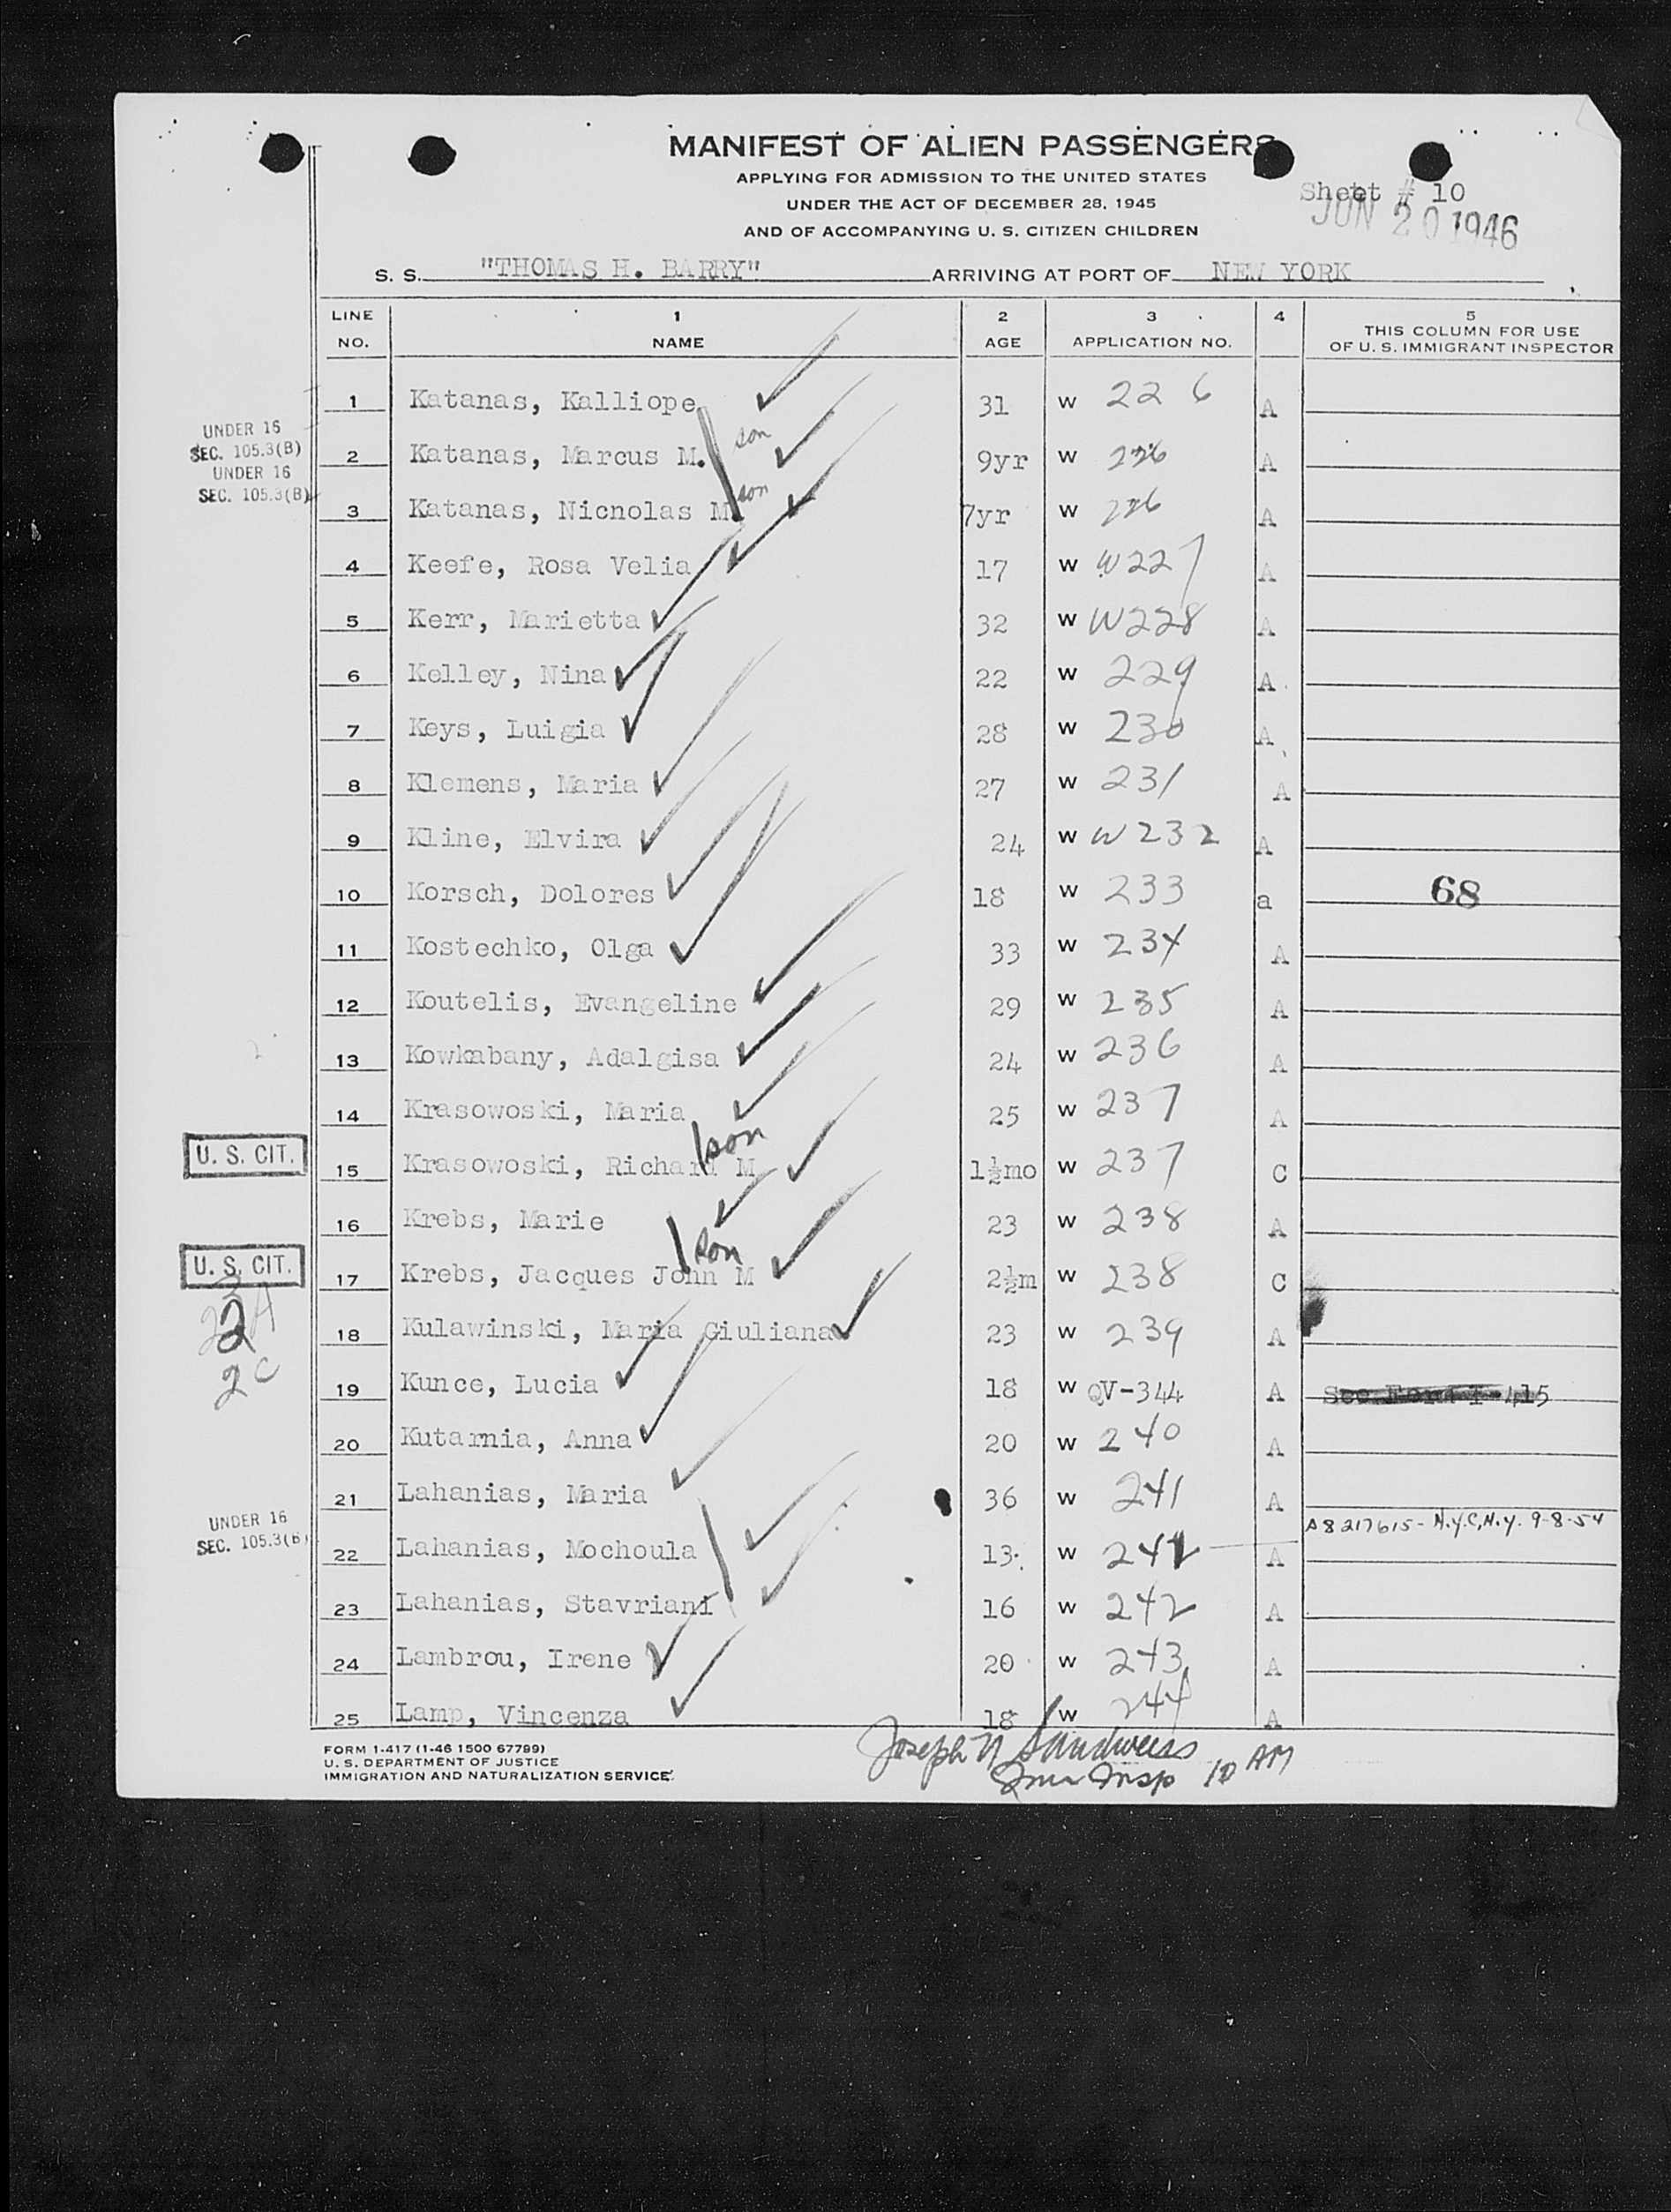 MANIFEST OF ALIEN PASSENGERS
APPLYING FOR ADMISSION TO THE UNITED STATES
UNDER THE ACT OF DECEMBER 28, 1945
AND OF ACCOMPANYING U. S. CITIZEN CHILDREN
Sheet # 10
JUN 20 1946
S. S. "THOMAS H. BARRY" ARRIVING AT PORT OF NEW YORK
LINE NO. 1 NAME 2 AGE 3 APPLICATION NO. 4 5 THIS COLUMN FOR USE OF U. S. IMMIGRANT INSPECTOR
1 Katanas, Kalliope 31 W 226 A
UNDER 16
SEC. 105.3(B)
2 Katanas, Marcus M. son 9yr W 226 A
UNDER 16
SEC. 105.3(B)
3 Katanas, Nicnolas M. son 7yr W 226 A
4 Keefe, Rosa Velia 17 W W227 A
5 Kerr, Marietta 32 W W228 A
6 Kelley, Nina 22 W 229 A
7 Keys, Luigia 28 W 230 A
8 Klemens, Maria 27 W 231 A
9 Kline, Elvira 24 W W232 A
10 Korsch, Dolores 18 W 233 a 68
11 Kostechko, Olga 33 W 234 A
12 Koutelis, Evangeline 29 W 235 A
13 Kowkabany, Adalgisa 24 W 236 A
14 Krasowoski, Maria 25 W 237 A
U. S. CIT. 15 Krasowoski, Richard M son 1½mo W 237 C
16 Krebs, Marie 23 W 238 A
U. S. CIT. 17 Krebs, Jacques John M son 2½m W 238 C
18 Kulawinski, Maria Giuliana 23 W 239 A
2C
19 Kunce, Lucia 18 W QV-344 A See Form I-415
20 Kutarnia, Anna 20 W 240 A
21 Lahanias, Maria 36 W 241 A
UNDER 16
SEC. 105.3(B)
A8217615- N.Y.C, N.Y. 9-8-54
22 Lahanias, Mochoula 13 W 242 A
23 Lahanias, Stavriani 16 W 242 A
24 Lambrou, Irene 20 W 243 A
25 Lamp, Vincenza 18 W 244 A
FORM 1-417 (1-46 1500 67799)
U. S. DEPARTMENT OF JUSTICE
IMMIGRATION AND NATURALIZATION SERVICE
Joseph N Sandweiss
Imm Insp 10 AM